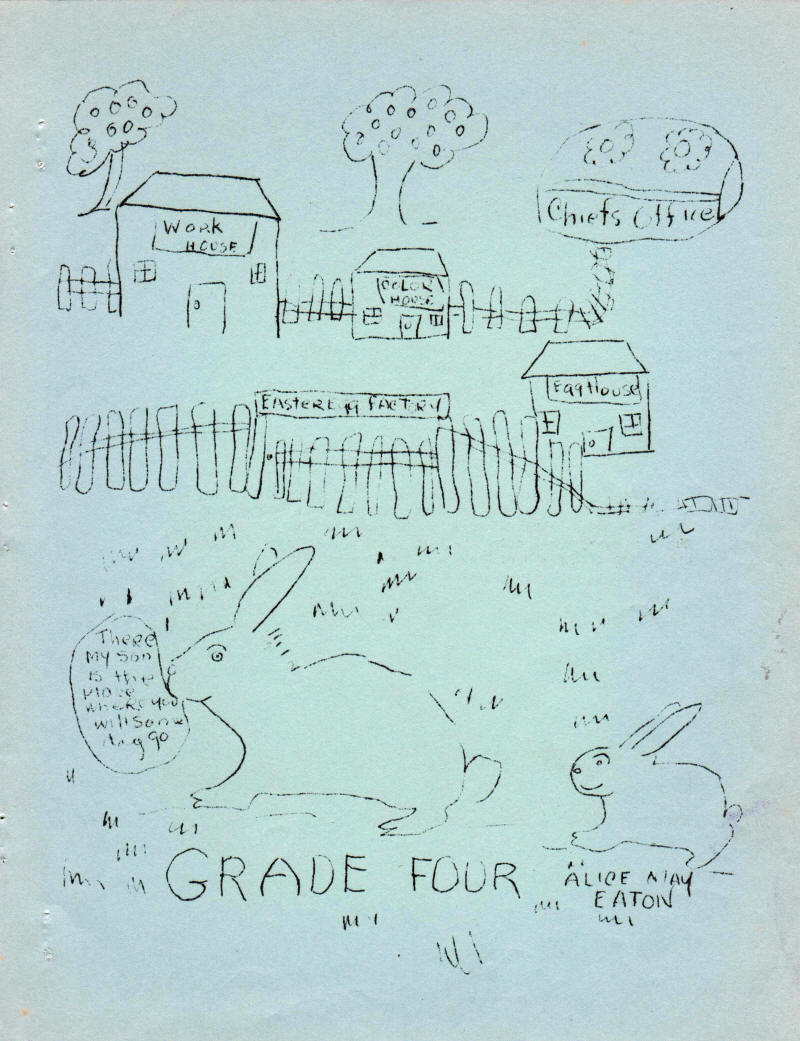 Work
House
Chiefs Office
Color
House
Egg House
Easter Egg Factory
There
my son
is the
place
where you
will some
day go
GRADE FOUR
ALICE MAY
EATON